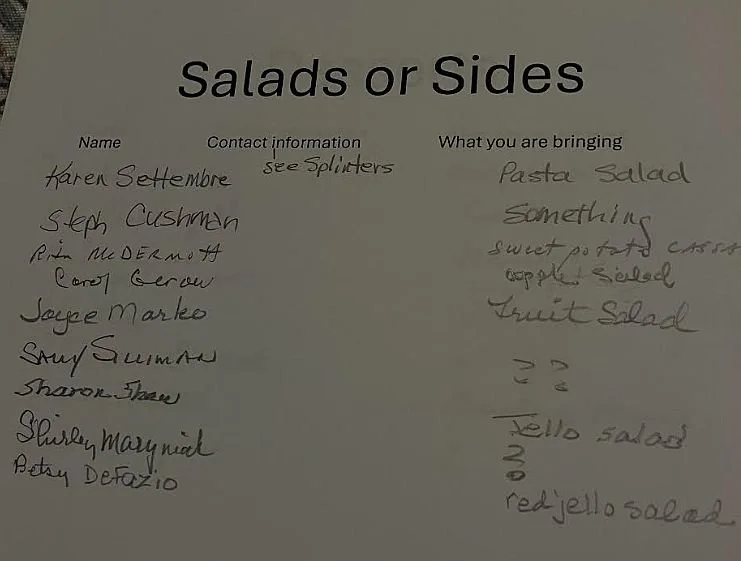 Salads or Sides
Name Contact information What you are bringing
see Splinters
Karen Settembre Pasta Salad
Steph Cushman Something
Rita McDERmott sweet potato CASSA
Carol Gerow apple salad
Joyce Marko Fruit Salad
SALLY SLIIMAN ? ?
Sharon Shaw
Shirley Maryniak Jello salad
Betsy DeFazio ?
red jello salad